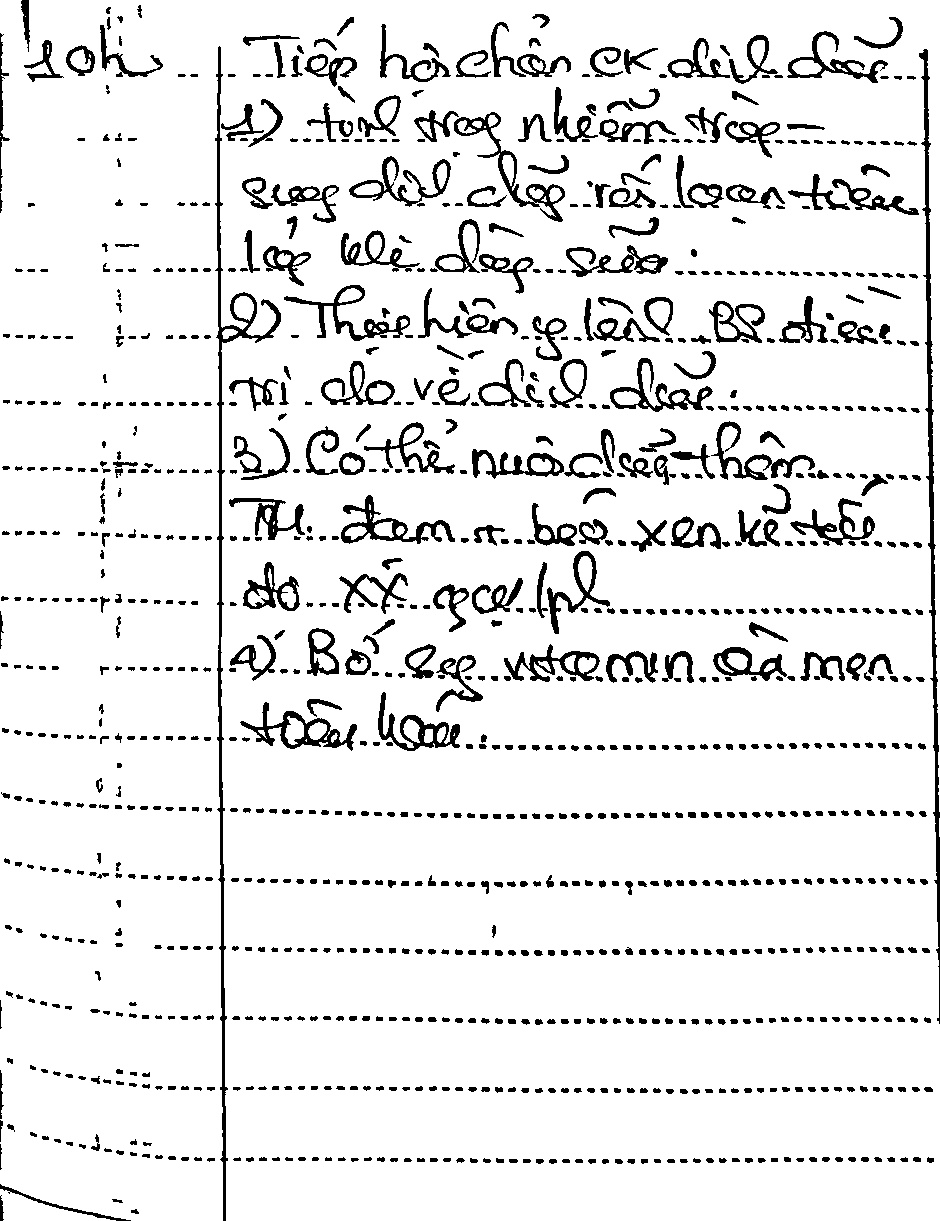 10h Tiếp hội chẩn CK dinh dưỡng
1) tình trạng nhiễm trùng
suy dinh dưỡng rối loạn tiêu
lỏng khi dùng sữa.
2) Thực hiện y lệnh BS điều
trị do về dinh dưỡng.
3) Có thể nuôi dưỡng thêm
TM. đạm + béo xen kẽ
do
4) Bổ sung vitamin và men
tiêu hoá.